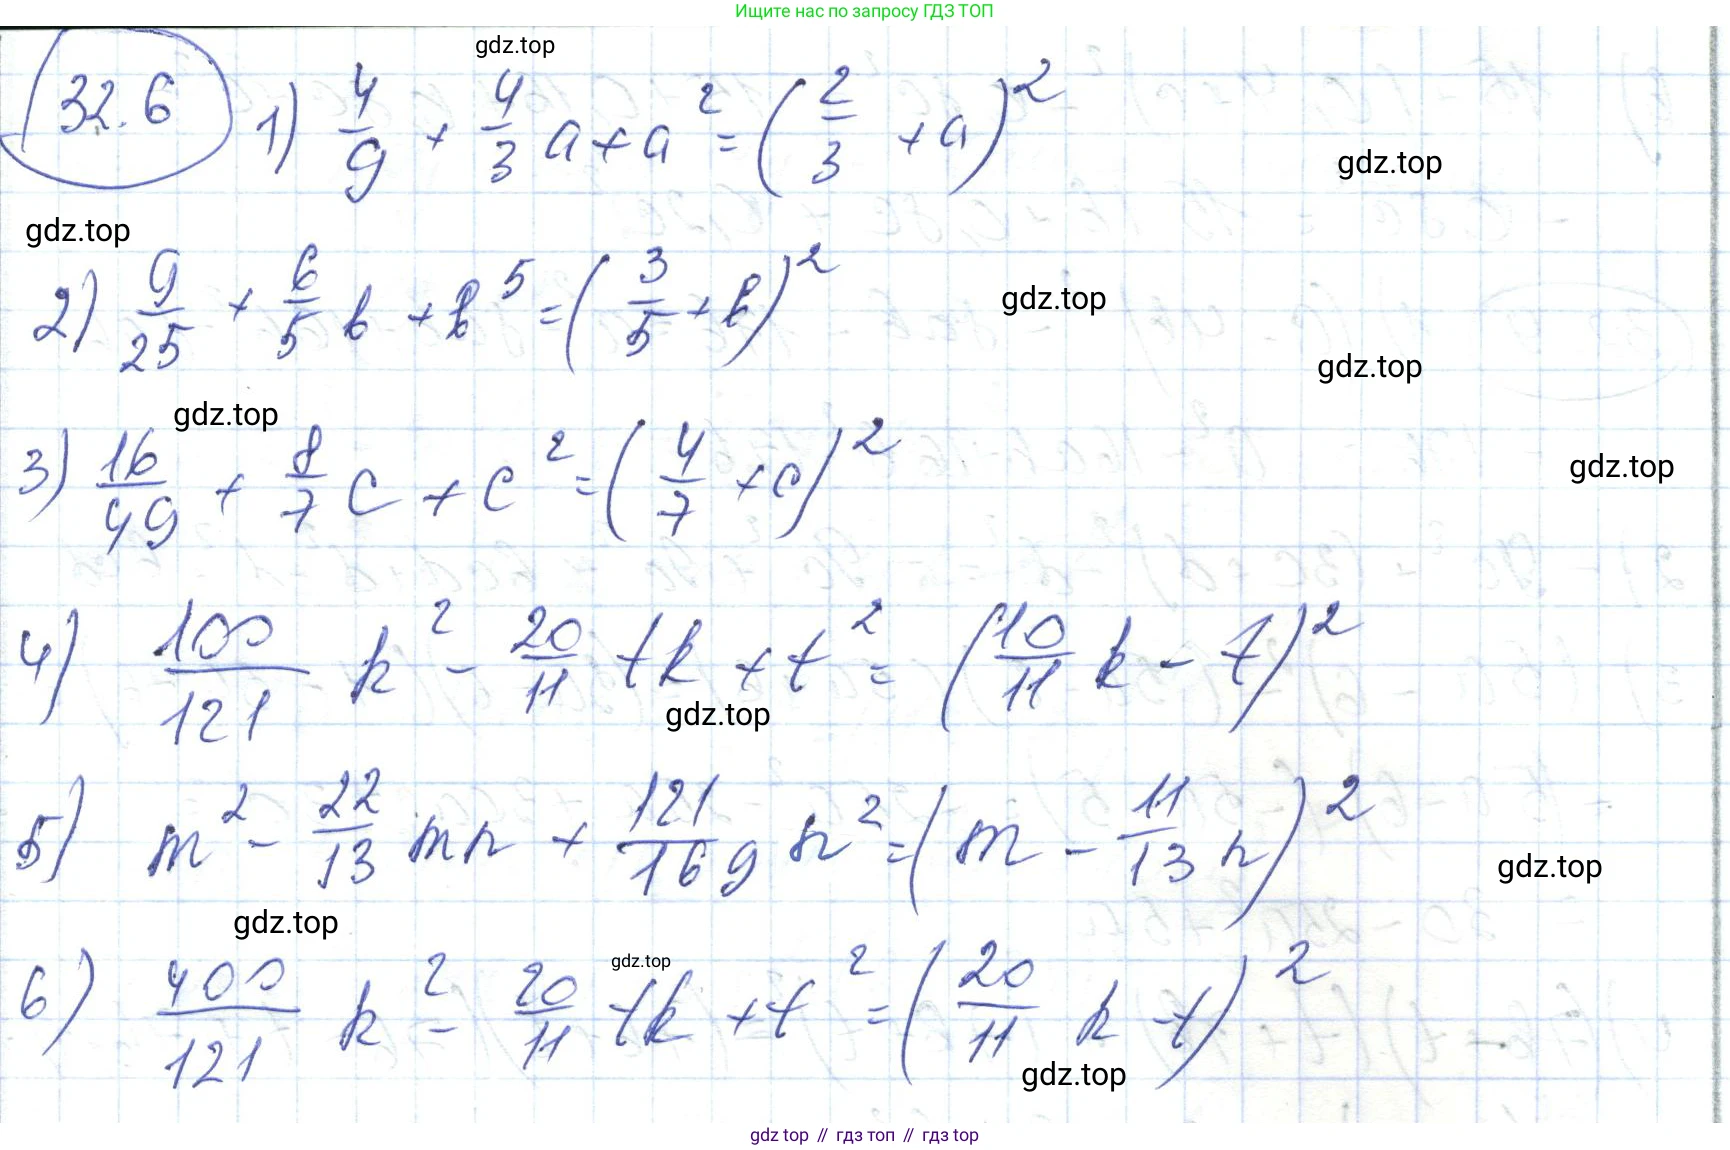 Ищите нас по запросу ГДЗ ТОП
gdz.top
32.6 1) 4/9 + 4/3 a + a² = (2/3 + a)²
gdz.top
gdz.top
2) 9/25 + 6/5 b + b⁵ = (3/5 + b)²
gdz.top
gdz.top
gdz.top
3) 16/49 + 8/7 c + c² = (4/7 + c)²
gdz.top
4) 100/121 k² - 20/11 tk + t² = (10/11 k - t)²
gdz.top
5) m² - 22/13 mn + 121/169 n² = (m - 11/13 n)²
gdz.top
gdz.top
gdz.top
6) 400/121 k² - 20/11 tk + t² = (20/11 k - t)²
gdz.top
gdz top // гдз топ // гдз top